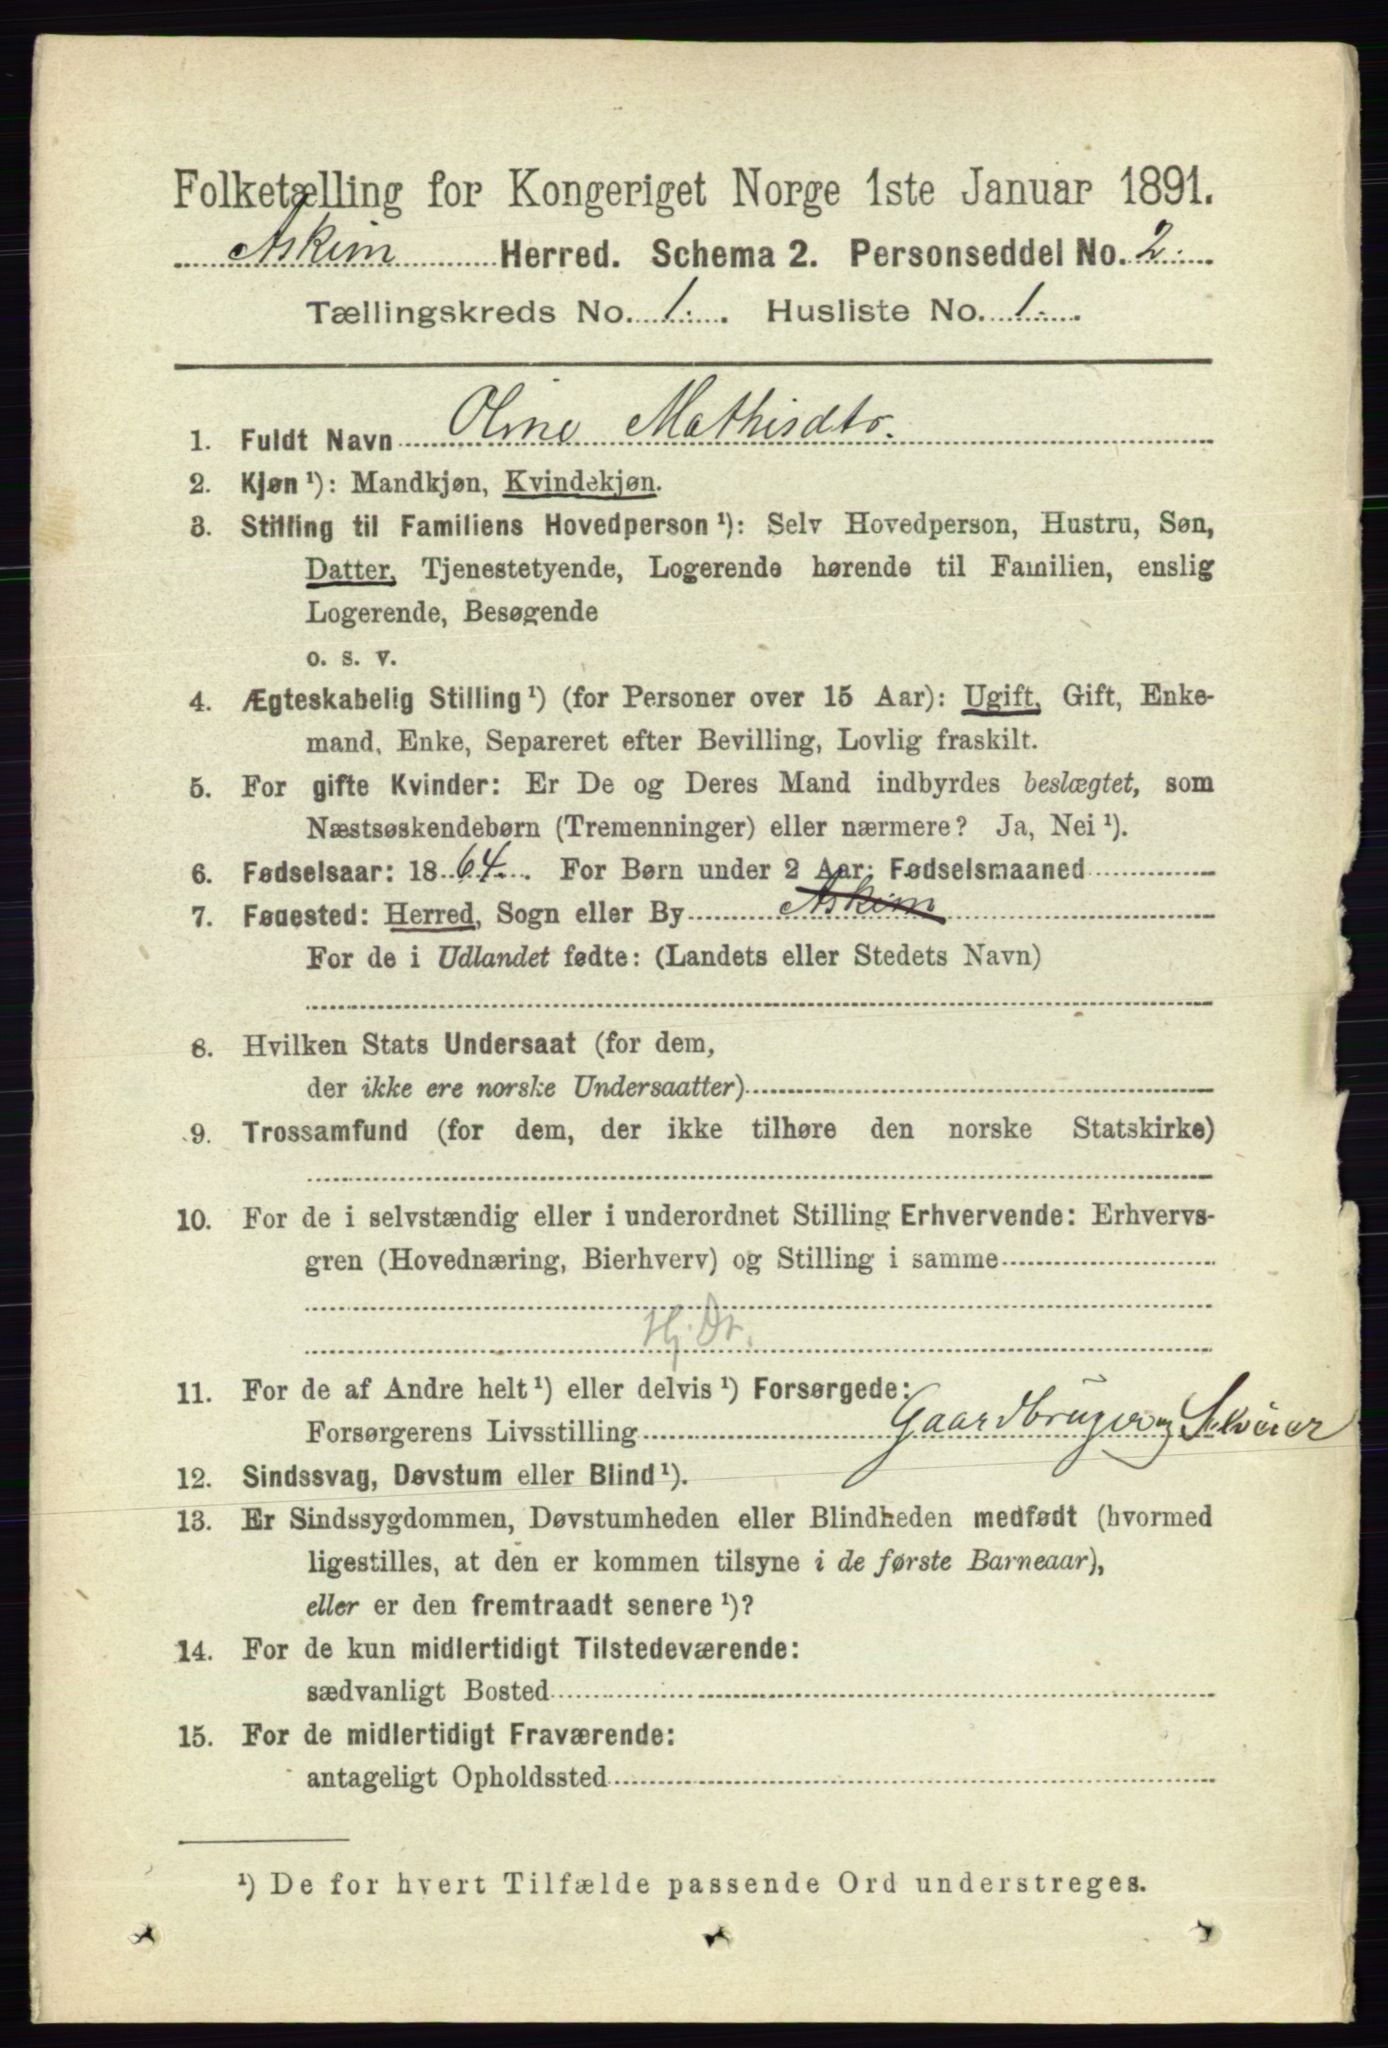 Folketælling for Kongeriget Norge 1ste Januar 1891.
Askim Herred. Schema 2. Personseddel No. 2.
Tællingskreds No. 1. Husliste No. 1.
1. Fuldt Navn Oline Mathisdtr.
2. Kjøn ¹): Mandkjøn, Kvindekjøn.
3. Stilling til Familiens Hovedperson ¹): Selv Hovedperson, Hustru, Søn,
Datter, Tjenestetyende, Logerende hørende til Familien, enslig
Logerende, Besøgende
o. s. v.
4. Ægteskabelig Stilling ¹) (for Personer over 15 Aar): Ugift, Gift, Enke-
mand, Enke, Separeret efter Bevilling, Lovlig fraskilt.
5. For gifte Kvinder: Er De og Deres Mand indbyrdes beslægtet, som
Næstsøskendebørn (Tremenninger) eller nærmere? Ja, Nei ¹).
6. Fødselsaar: 1864. For Børn under 2 Aar: Fødselsmaaned
7. Fødested: Herred, Sogn eller By Askim
For de i Udlandet fødte: (Landets eller Stedets Navn)
8. Hvilken Stats Undersaat (for dem,
der ikke ere norske Undersaatter)
9. Trossamfund (for dem, der ikke tilhøre den norske Statskirke)
10. For de i selvstændig eller i underordnet Stilling Erhvervende: Erhvervs-
gren (Hovednæring, Bierhverv) og Stilling i samme
Hj. Dt.
11. For de af Andre helt ¹) eller delvis ¹) Forsørgede:
Forsørgerens Livsstilling Gaardbruger og Selveier
12. Sindssvag, Døvstum eller Blind ¹).
13. Er Sindssygdommen, Døvstumheden eller Blindheden medfødt (hvormed
ligestilles, at den er kommen tilsyne i de første Barneaar),
eller er den fremtraadt senere ¹)?
14. For de kun midlertidigt Tilstedeværende:
sædvanligt Bosted
15. For de midlertidigt Fraværende:
antageligt Opholdssted
¹) De for hvert Tilfælde passende Ord understreges.